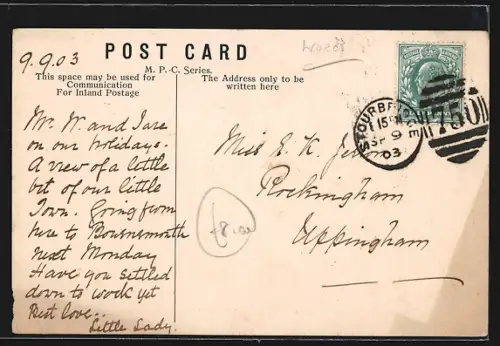 9.9.03
POST CARD
M. P.-C. Series.
This space may be used for
Communication
For Inland Postage
The Address only to be
written here
Worcs
STOURBRIDGE
SP 9
03
Mr. W. and I are
on our holidays.
A view of a little
bit of our little
Town. Going from
here to Bournemouth
next Monday
Have you settled
down to work yet
Best love..
Little Lady.
Miss E. K.
Rockingham
Uppingham
£8.00